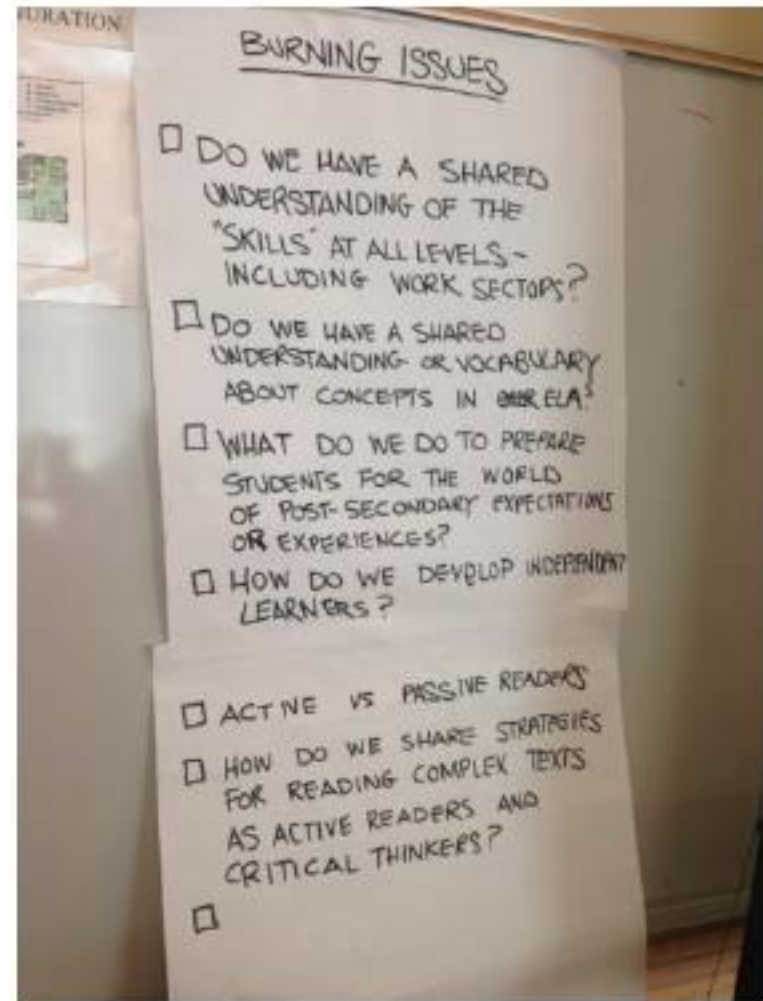 URATION
BURNING ISSUES
☐ DO WE HAVE A SHARED
UNDERSTANDING OF THE
"SKILLS" AT ALL LEVELS -
INCLUDING WORK SECTORS?
☐ DO WE HAVE A SHARED
UNDERSTANDING OR VOCABULARY
ABOUT CONCEPTS IN ELA?
☐ WHAT DO WE DO TO PREPARE
STUDENTS FOR THE WORLD
OF POST-SECONDARY EXPECTATIONS
OR EXPERIENCES?
☐ HOW DO WE DEVELOP INDEPENDENT
LEARNERS?
☐ ACTIVE VS PASSIVE READERS
☐ HOW DO WE SHARE STRATEGIES
FOR READING COMPLEX TEXTS
AS ACTIVE READERS AND
CRITICAL THINKERS?
☐